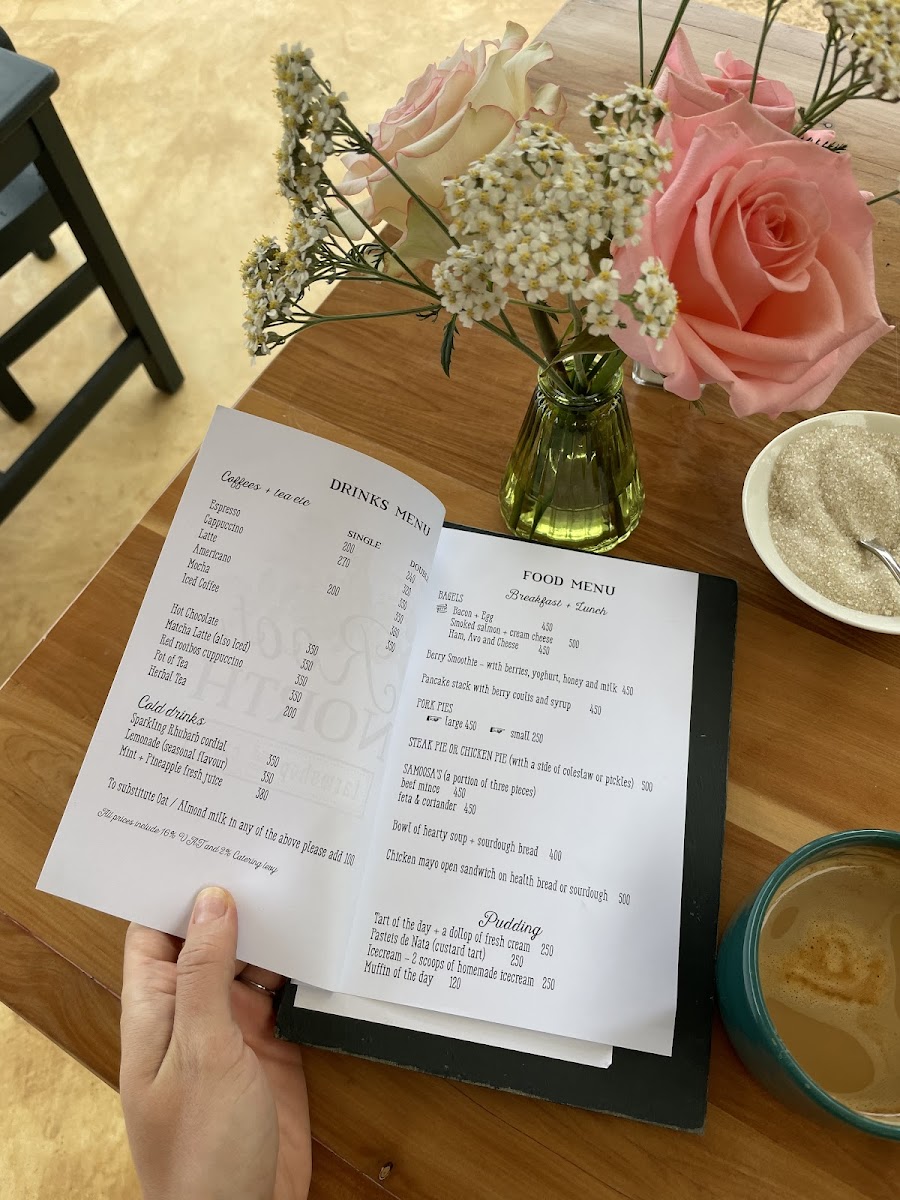 DRINKS MENU
Coffees + tea etc
SINGLE
Espresso 200 240
Cappuccino 270 320
Latte 350
Americano 200
Mocha
Iced Coffee 350
Hot Chocolate 350
Matcha Latte (also Iced) 350
Red rooibos cappuccino 350
Pot of Tea 350
Herbal Tea 200
Cold drinks
Sparkling Rhubarb cordial 350
Lemonade (seasonal flavour) 350
Mint + Pineapple fresh juice 380
To substitute Oat / Almond milk in any of the above please add 100
All prices include 16% VAT and 2% Catering levy
FOOD MENU
Breakfast + Lunch
BAGELS
Bacon + Egg 450
Smoked salmon + cream cheese 500
Ham, Avo and Cheese 450
Berry Smoothie – with berries, yoghurt, honey and milk 450
Pancake stack with berry coulis and syrup 450
PORK PIES
large 450 small 250
STEAK PIE OR CHICKEN PIE (with a side of coleslaw or pickles) 500
SAMOOSA'S (a portion of three pieces)
beef mince 450
feta & coriander 450
Bowl of hearty soup + sourdough bread 400
Chicken mayo open sandwich on health bread or sourdough 500
Pudding
Tart of the day + a dollop of fresh cream 250
Pasteis de Nata (custard tart) 250
Icecream – 2 scoops of homemade icecream 250
Muffin of the day 120